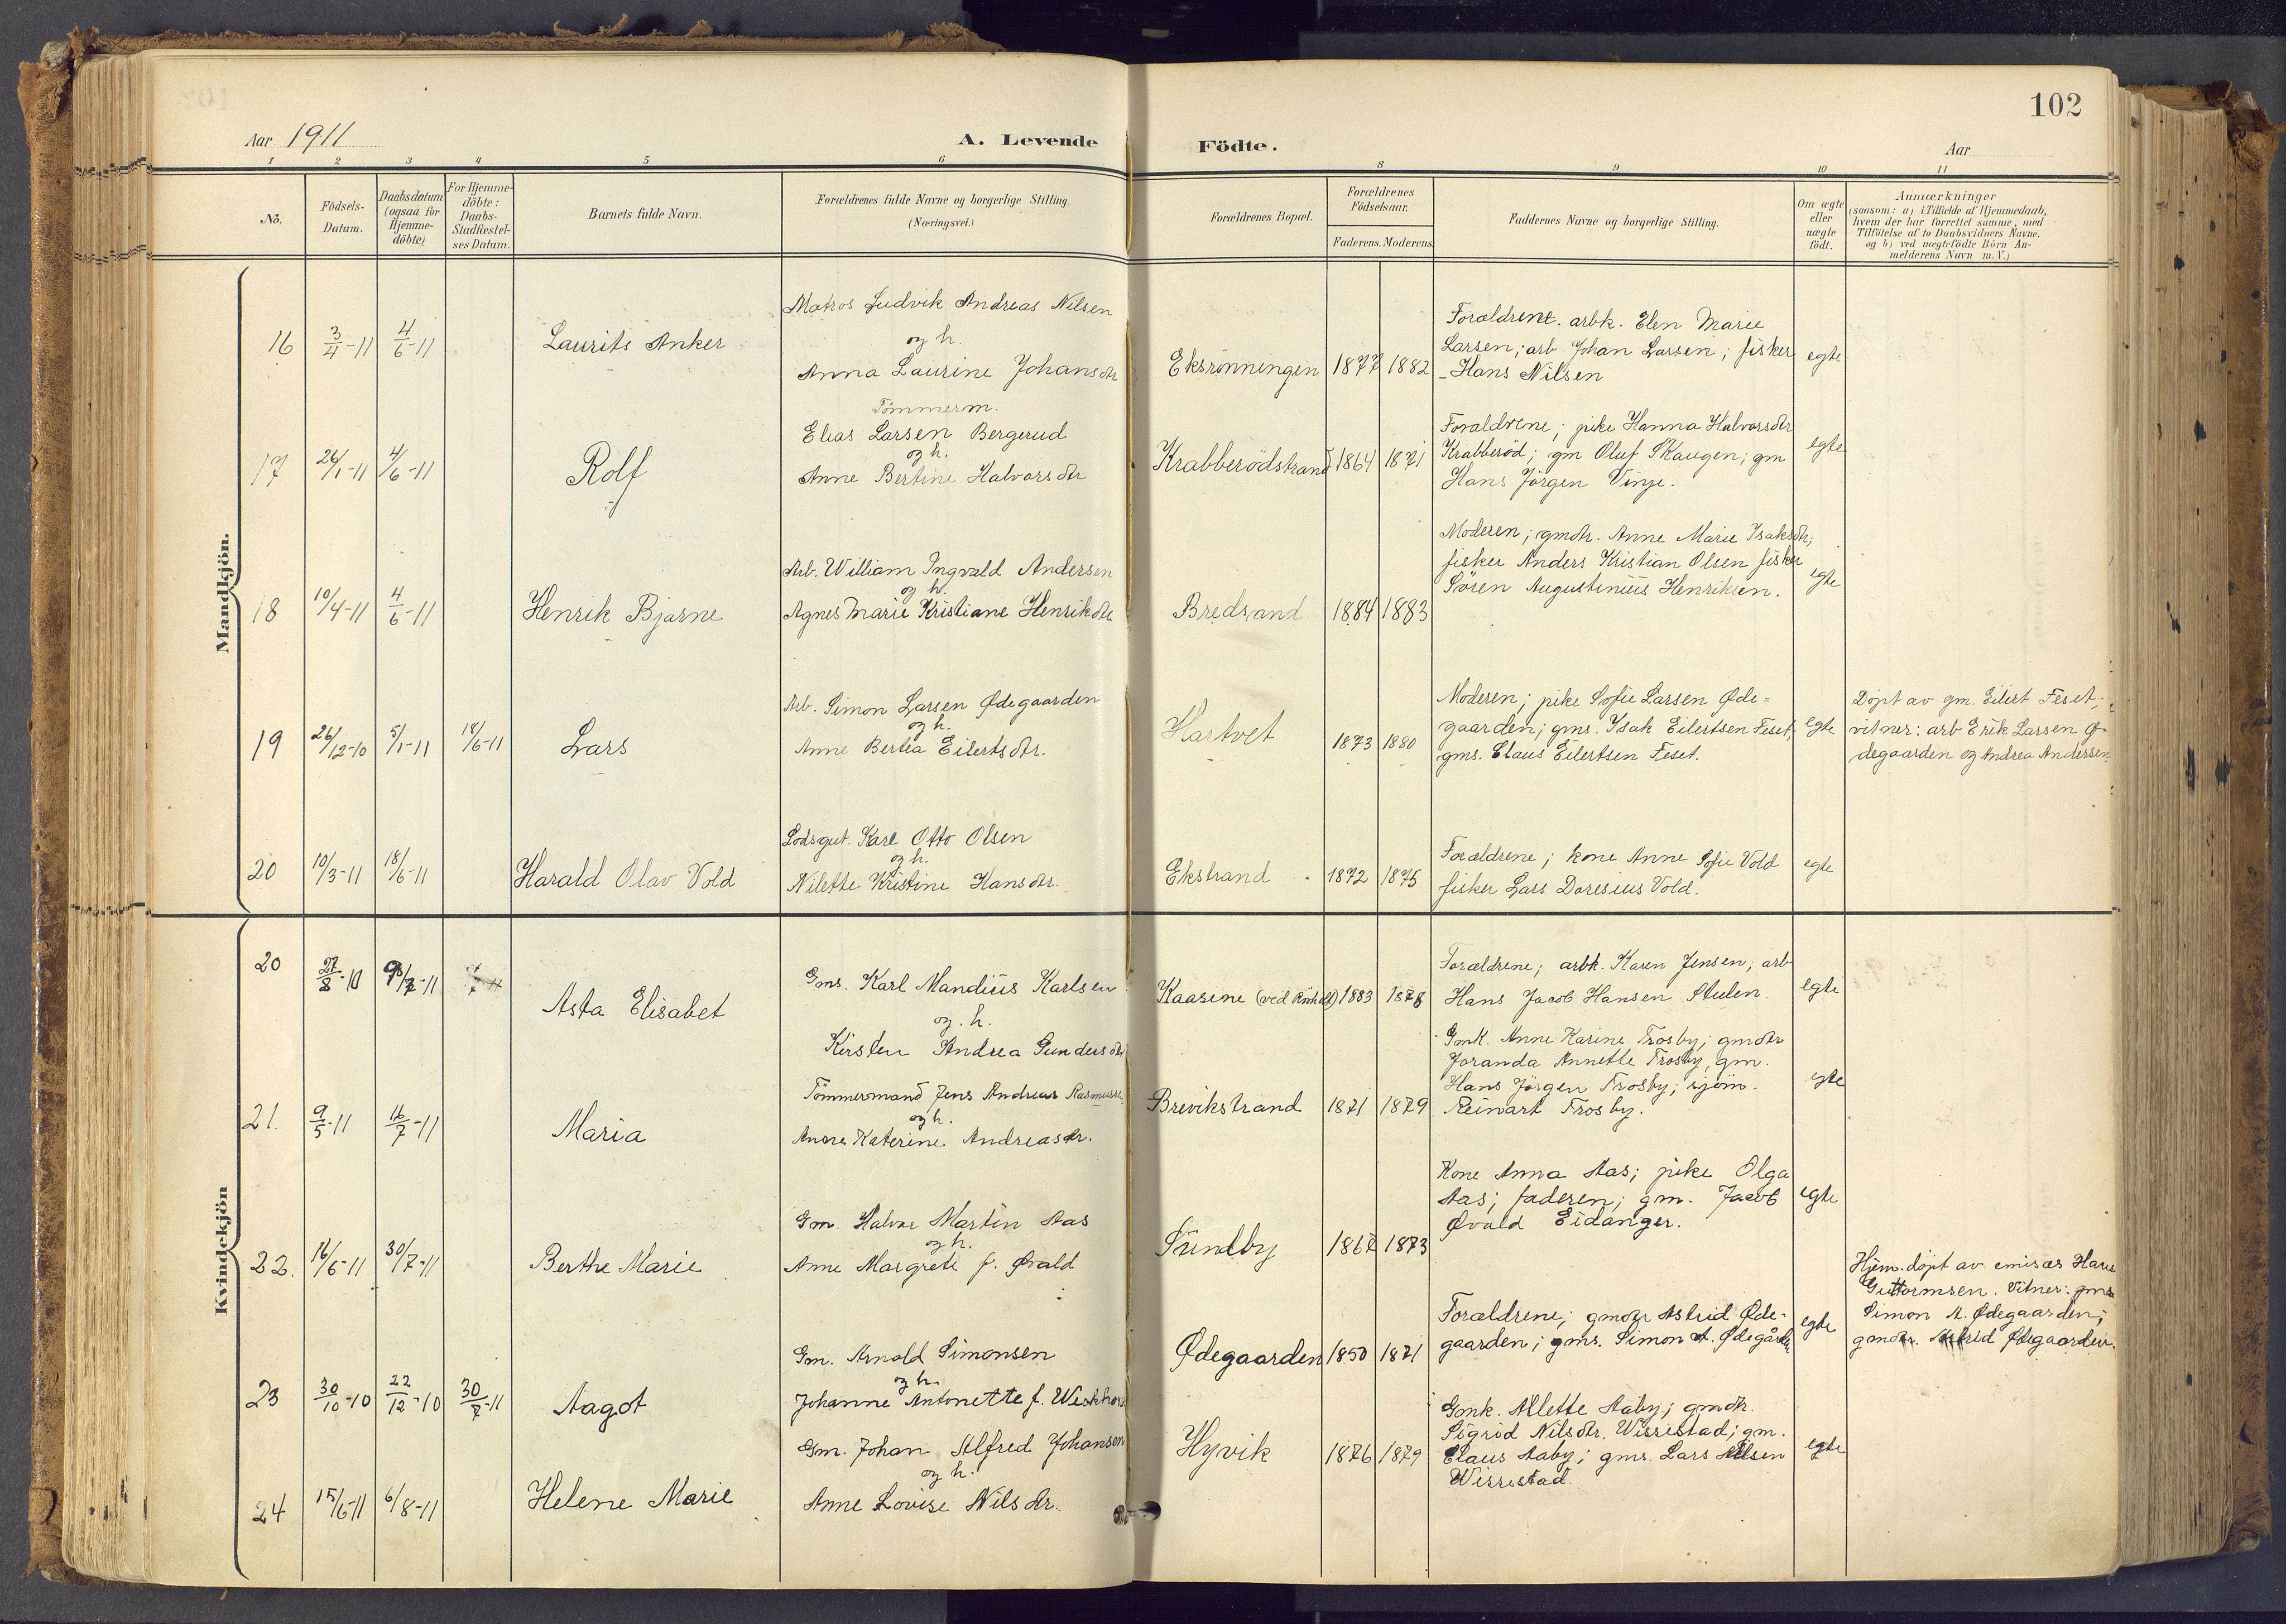 102
Aar 1911
A. Levende Födte.
Aar
1 2 3 4 5 6 8 9 10 11
No.
Födsels-Datum.
Daabsdatum (ogsaa for Hjemme-döbte)
For Hjemme-döbte: Daabs-Stadfestel-ses Datum.
Barnets fulde Navn.
Forældrenes fulde Navne og borgerlige Stilling.
(Næringsvei.)
Forældrenes Bopæl.
Forældrenes Födselsaar.
Faderens. Moderens.
Faddernes Navne og borgerlige Stilling.
Om ægte eller uægte födt.
Anmærkninger
(saasom: a) i Tilfælde af Hjemmedaab, hvem der har forrettet samme, med Tilföielse af to Daabsvidners Navne. og b) ved uægtefödte Börn An-melderens Navn m. V.)
Mandkjön.
16 3/4-11 4/6-11 Laurits Anker
Matros Ludvik Andreas Nilsen
og h.
Anna Laurine Johansdtr
Eksrönningen 1877 1882
Forældrene. arbk. Elen Marie
Larsen; arb Johan Larsen; fisker
Hans Nilsen
egte
17 26/1-11 4/6-11 Rolf
Tömmerm.
Elias Larsen Bergerud
og h.
Anne Bertine Halvorsdtr
Krabberödstrand 1864 1871
Forældrene; pike Hanna Halvorsdtr
Krabberöd; gm Oluf Skaugen; gm
Hans Jörgen Vinje.
egte
18 10/4-11 4/6-11 Henrik Bjarne
Arb. William Ingvald Andersen
og h.
Agnes Marie Kristiane Henrikdtr
Bredsand 1884 1883
Moderen; gmdtr. Anne Marie Isaksdtr;
fisker Anders Kristian Olsen fisker
Sören Augustinius Henriksen.
egte
19 26/12-10 5/1-11 18/6-11 Lars
Arb. Simon Larsen Ødegaarden
og h.
Anne Bertea Eilertsdtr.
Hartvet 1873 1880
Moderen; pike Sofie Larsen Øde=
gaarden; gms. Isak Eilertsen Feset;
gms. Claus Eilertsen Feset.
egte
Döpt av gm. Eilert Feset;
vitner: arb Erik Larsen Ø-
degaarden og Andrea Andersen.
20 10/3-11 18/6-11 Harald Olav Vold
Lodsgut. Karl Otto Olsen
og h.
Nilette Kristine Hansdtr.
Ekstrand 1872 1875
Forældrene; kone Anne Sofie Vold
fisker Lars Doresius Vold.
egte
Kvindekjön
20 27/8-10 Asta Elisabet
Gms. Karl Mandius Karlsen
og. h.
Kirsten Andrea Gundersdtr
Kaasene 1883 1878
Forældrene; arbk. Karen Jensen; arb
Hans Jacob Hansen Stulen.
egte
21. 9/5-11 16/7-11 Maria
Tömmermand Jens Andreas Rasmussen
og h.
Anne Katerine Andreasdtr.
Brevikstrand 1871 1879
Gmk. Anne Karine Trosby; gmdtr
Joranda Annette Trosby, gm.
Hans Jörgen Trosby; sjöm.
Reinart Trosby.
egte
22. 16/6-11 30/7-11 Berthe Marie
Gm. Halvor Martin Aas
og h.
Anne Margrete f. Øvald
Sundby 1867 1873
Kone Anna Aas; pike Olga
Aas; faderen; gm. Jacob
Øvald Eidanger.
egte
23 30/10-10 22/12-10 30/7-11 Aagot
Gm. Arnold Simonsen
og h.
Johanne Antonette f.
Ødegaarden 1850 1871
Forældrene; gmdtr Astrid Øde-
gaarden; gms. Simon A. Ødegården
egte
Hjem. döpt av emisær Hans
Guttormsen. Vitner: gms
Simon A. Ødegaarden;
gmdtr. Astrid Ødegaarden.
24 15/6-11 6/8-11 Helene Marie
Gm. Johan Alfred Johansen
og h.
Anne Lovise Nilsdtr.
Hyvik 1876 1879
Gmk. Allette Aaby; gmdtr.
Sigrid Nilsdtr. Wissestad; gm.
Claus Aaby; gms. Lars Nilsen
Wissestad.
egte